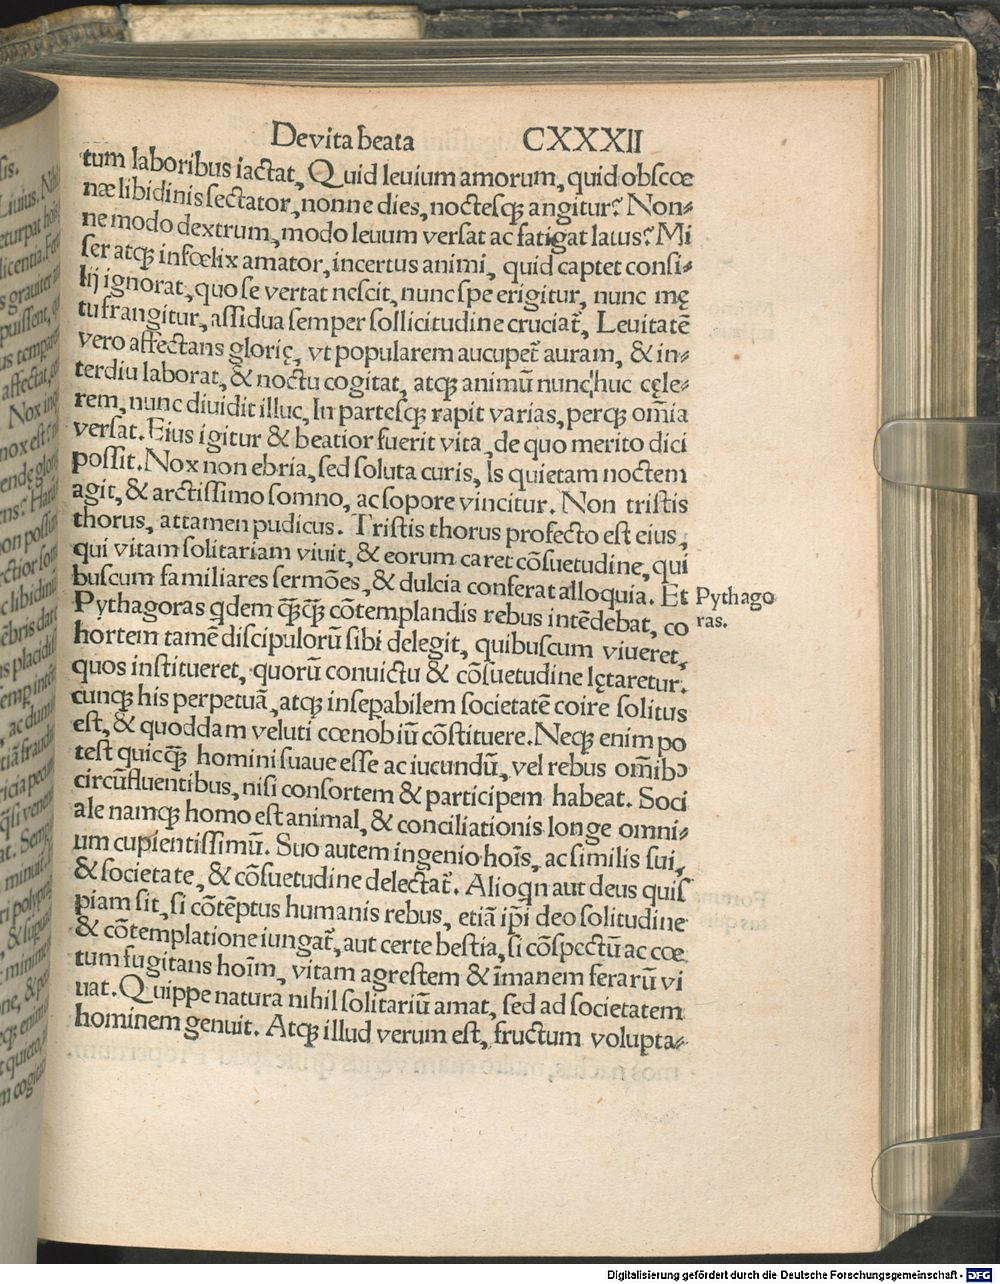 De vita beata CXXXII
tum laboribus iactat, Quid leuium amorum, quid obscœ
næ libidinis sectator, nonne dies, noctesq; angitur? Non⸗
ne modo dextrum, modo leuum versat ac fatigat latus? Mi
ser atq; infœlix amator, incertus animi, quid captet consi⸗
lij ignorat, quo se vertat nescit, nunc spe erigitur, nunc mę
tu frangitur, assidua semper sollicitudine cruciat᷑, Leuitatē
vero affectans glorię, vt popularem aucupet᷑ auram, & in⸗
terdiu laborat, & noctu cogitat, atq; animū nunc huc cęle⸗
rem, nunc diuidit illuc, In partesq; rapit varias, perq; om̄ia
versat. Eius igitur & beatior fuerit vita, de quo merito dici
possit. Nox non ebria, sed soluta curis, Is quietam noctem
agit, & arctissimo somno, ac sopore vincitur. Non tristis
thorus, attamen pudicus. Tristis thorus profecto est eius,
qui vitam solitariam viuit, & eorum caret cōsuetudine, qui
buscum familiares sermōes, & dulcia conferat alloquia. Et
Pythagoras qdem q̄q̄ cōtemplandis rebus intēdebat, co
hortem tamē discipulorū sibi delegit, quibuscum viueret,
quos institueret, quorū conuictu & cōsuetudine lętaretur.
cunq; his perpetuā, atq; insepabilem societatē coire solitus
est, & quoddam veluti cœnobiū cōstituere. Neq; enim po
test quicq̄ homini suaue esse ac iucundū, vel rebus om̄ibꝰ
circūfluentibus, nisi consortem & participem habeat. Soci
ale namq; homo est animal, & conciliationis longe omni⸗
um cupientissimū. Suo autem ingenio hoīs, ac similis sui,
& societate, & cōsuetudine delectat᷑. Alioqn aut deus quis
piam sit, si cōtēptus humanis rebus, etiā ip̄i deo solitudine
& cōtemplatione iungat᷑, aut certe bestia, si cōspectū ac cœ
tum fugitans hoīm, vitam agrestem & īmanem ferarū vi
uat. Quippe natura nihil solitariū amat, sed ad societatem
hominem genuit. Atq; illud verum est, fructum volupta⸗
Pythago
ras.
Digitalisierung gefördert durch die Deutsche Forschungsgemeinschaft - DFG